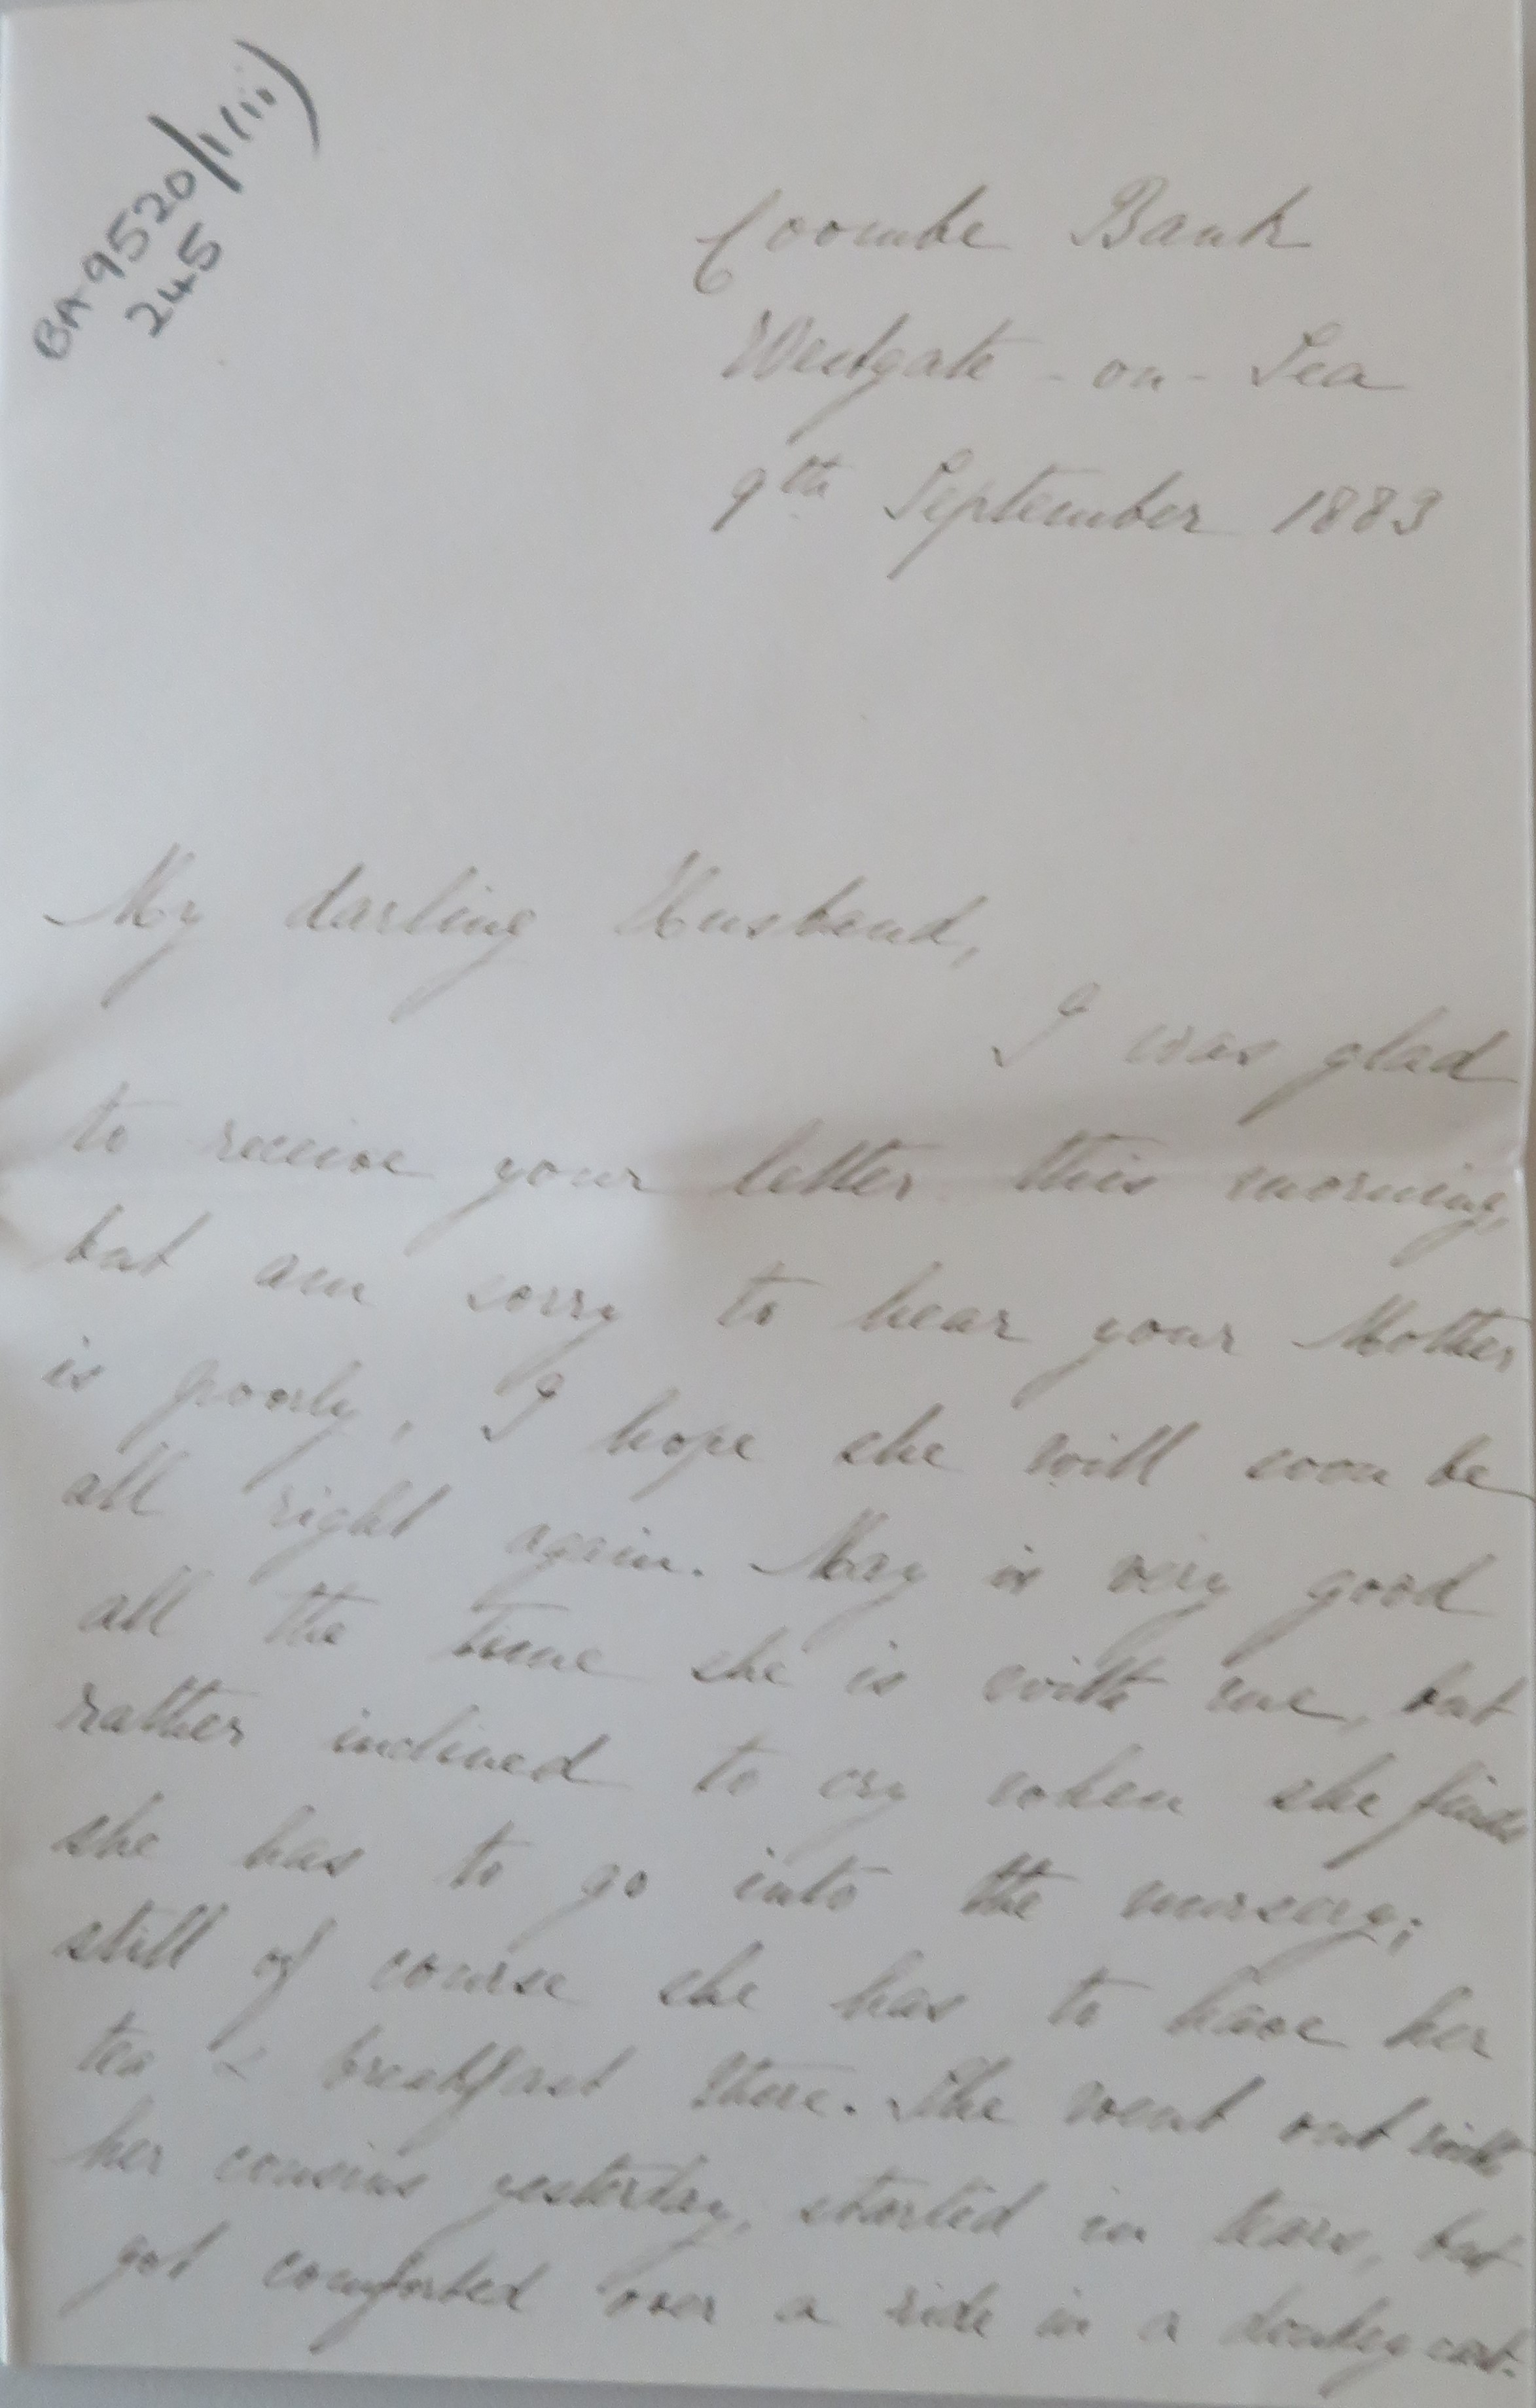 BA 9520/1(iii)
245
Coombe Bank
Westgate - on - Sea
9th September 1883
My darling Husband,
I was glad
to receive your letter this morning,
but am sorry to hear your Mother
is poorly, I hope she will soon be
all right again. May is very good
all the time she is with me, but
rather inclined to cry when she finds
she has to go into the nursery;
still of course she has to have her
tea & breakfast there. She went out with
her cousins yesterday, started in tears, but
got comforted over a ride in a donkey cart.